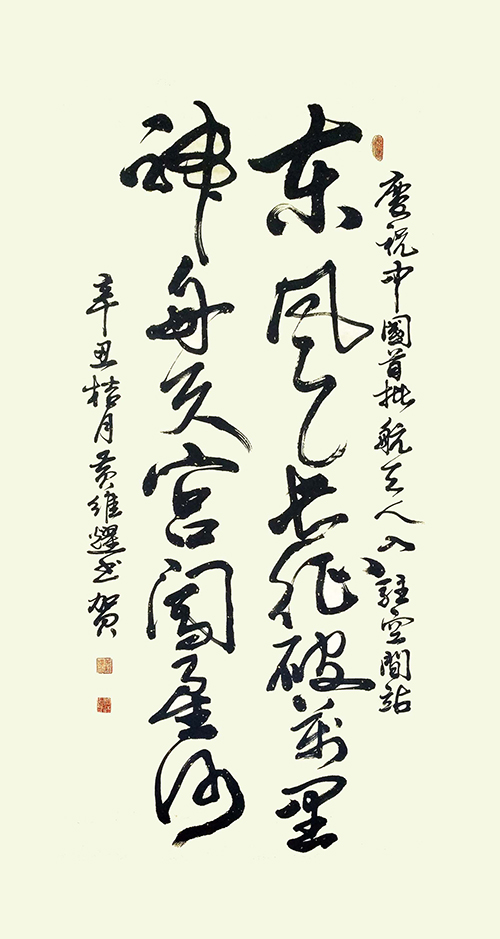 慶祝中國首批航天人入駐空間站
东风长征破萬里
神舟天宫闯星河
辛丑桔月黄维耀书贺